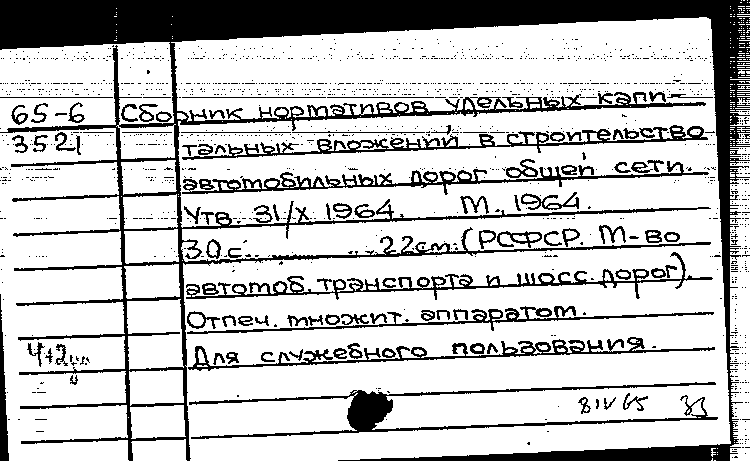 65-6 Сборник нормативов удельных капи-
3521 тальных вложений в строительство
автомобильных дорог общей сети.
Утв. 31/X 1964. М., 1964.
30 с. 22 см. (РСФСР. М-во
автомоб. транспорта и шосс. дорог).
Отпеч. множит. аппаратом.
Для служебного пользования.
8 IV 65